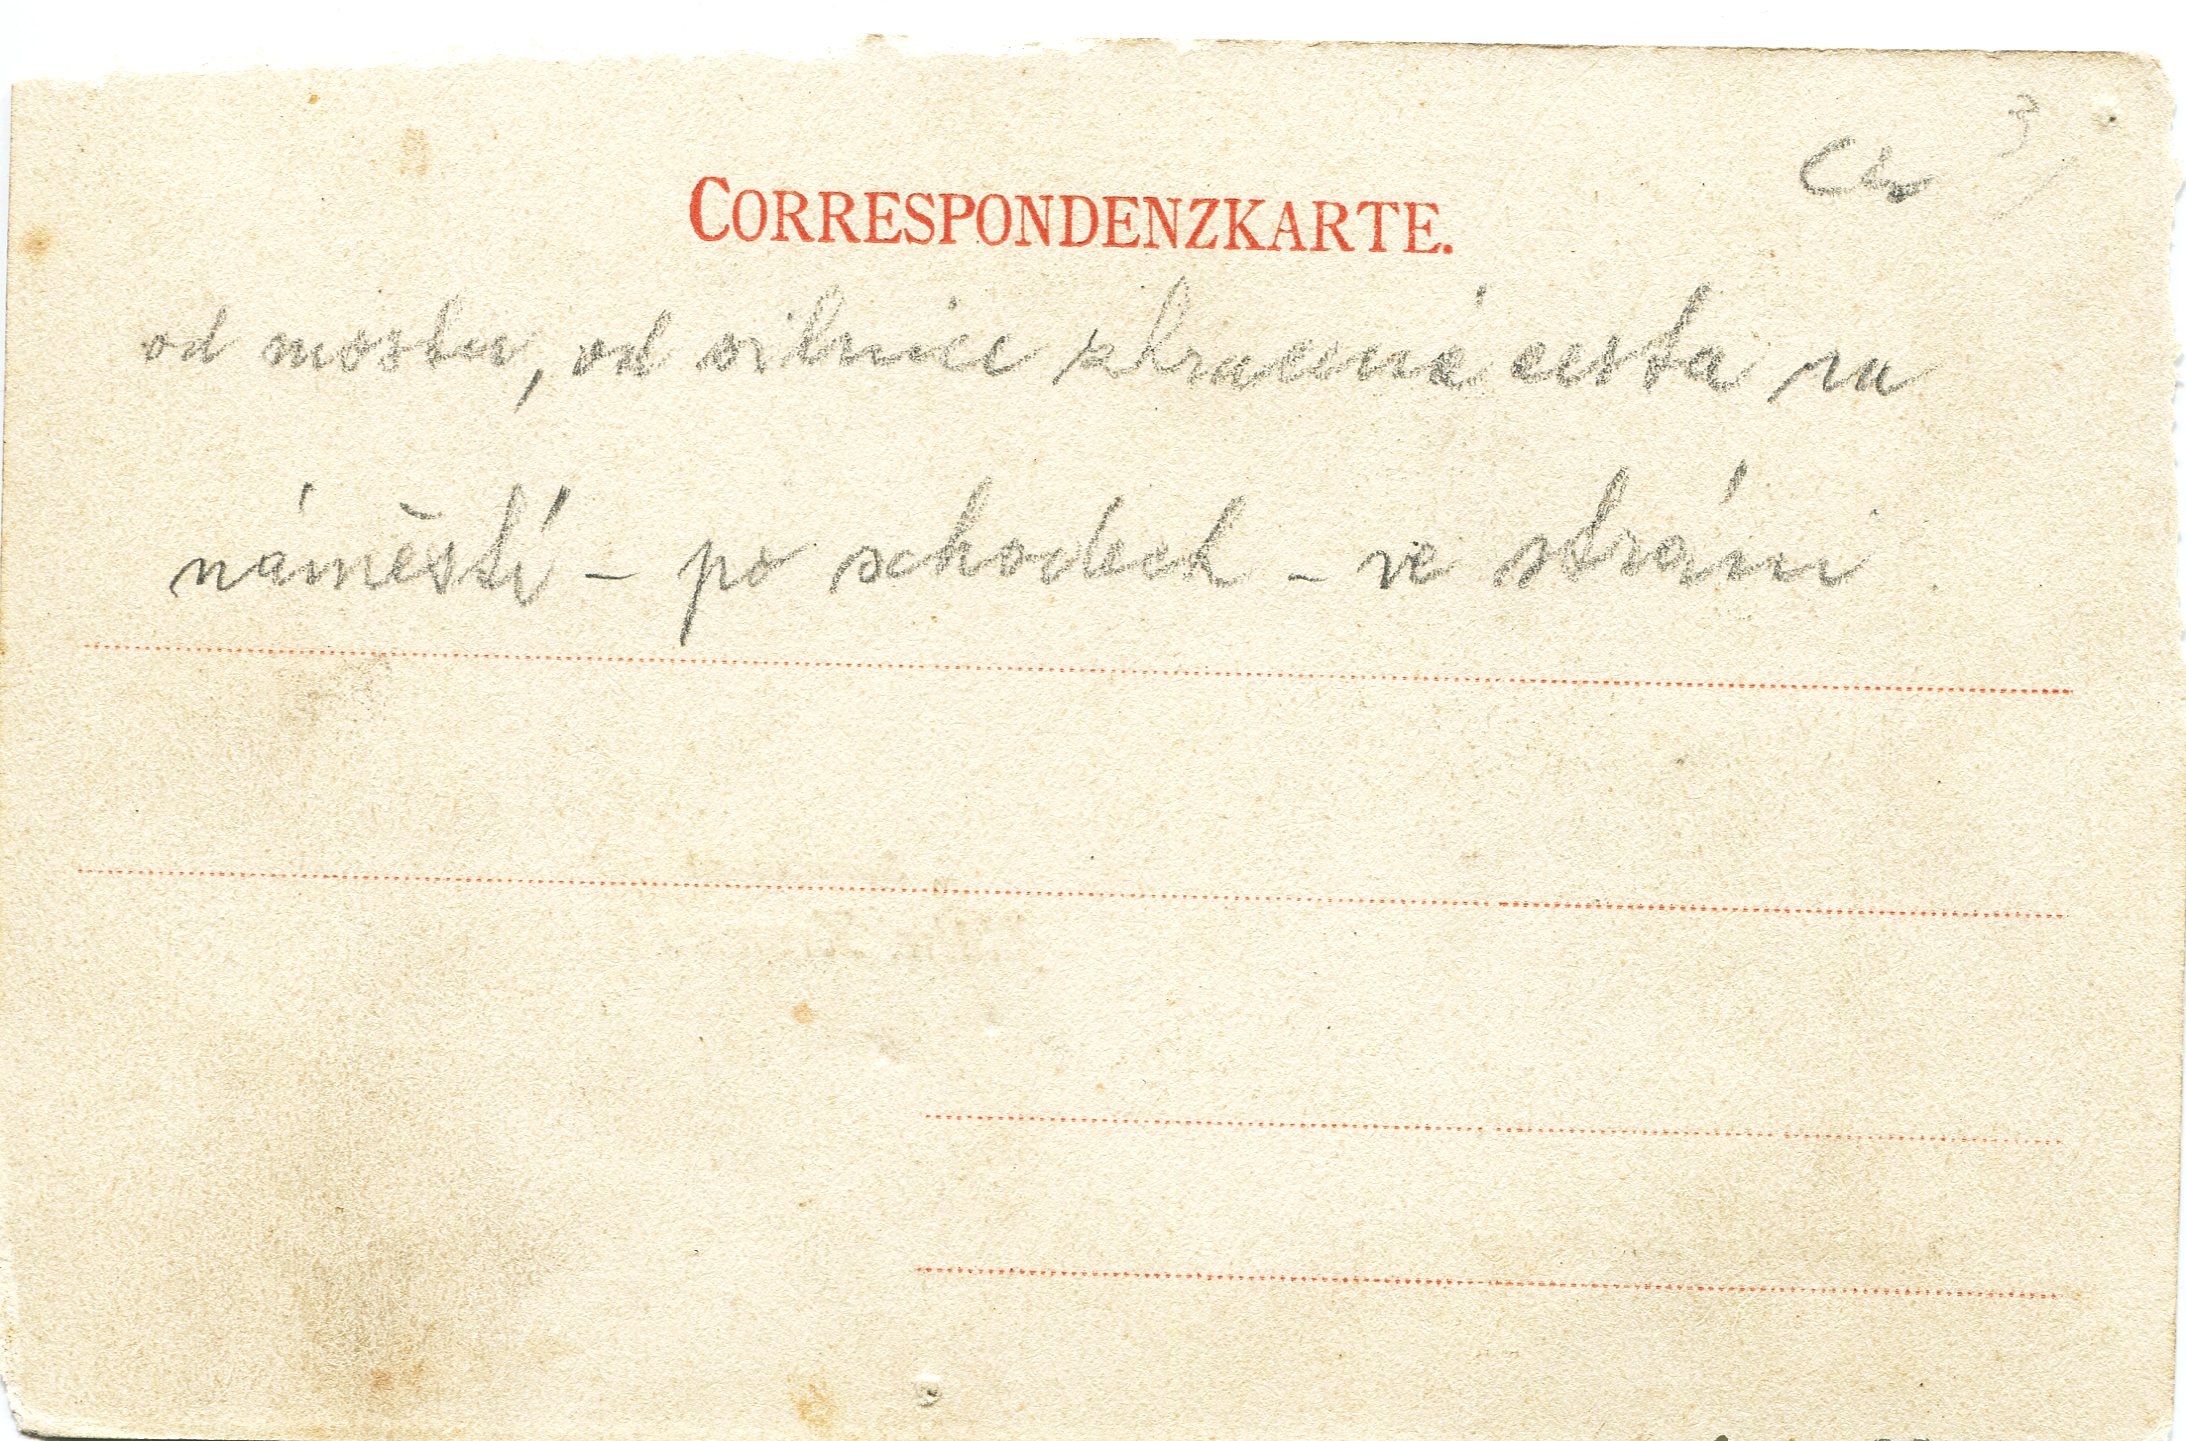 3
CORRESPONDENZKARTE.
od mostu, od silnice zkrácená cesta na
náměstí – po schodech – ve stráni